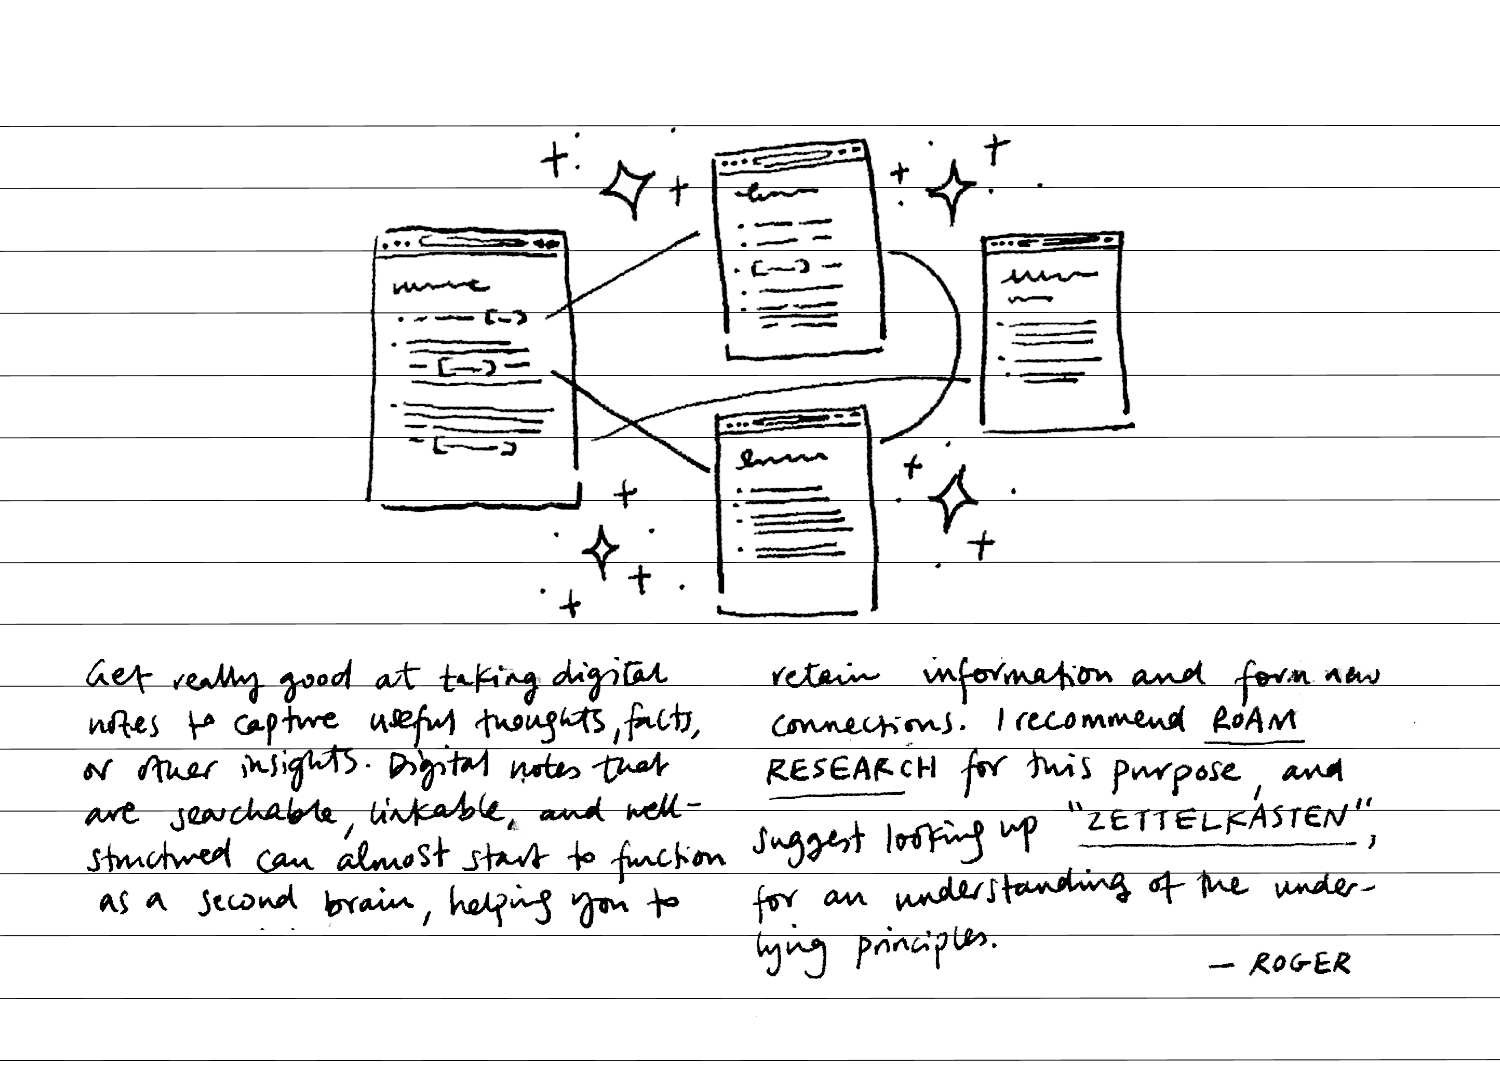 Get really good at taking digital
notes to capture useful thoughts, facts,
or other insights. Digital notes that
are searchable, linkable, and well-
structured can almost start to function
as a second brain, helping you to
retain information and form new
connections. I recommend ROAM
RESEARCH for this purpose, and
suggest looking up "ZETTELKASTEN",
for an understanding of the under-
lying principles.
— ROGER